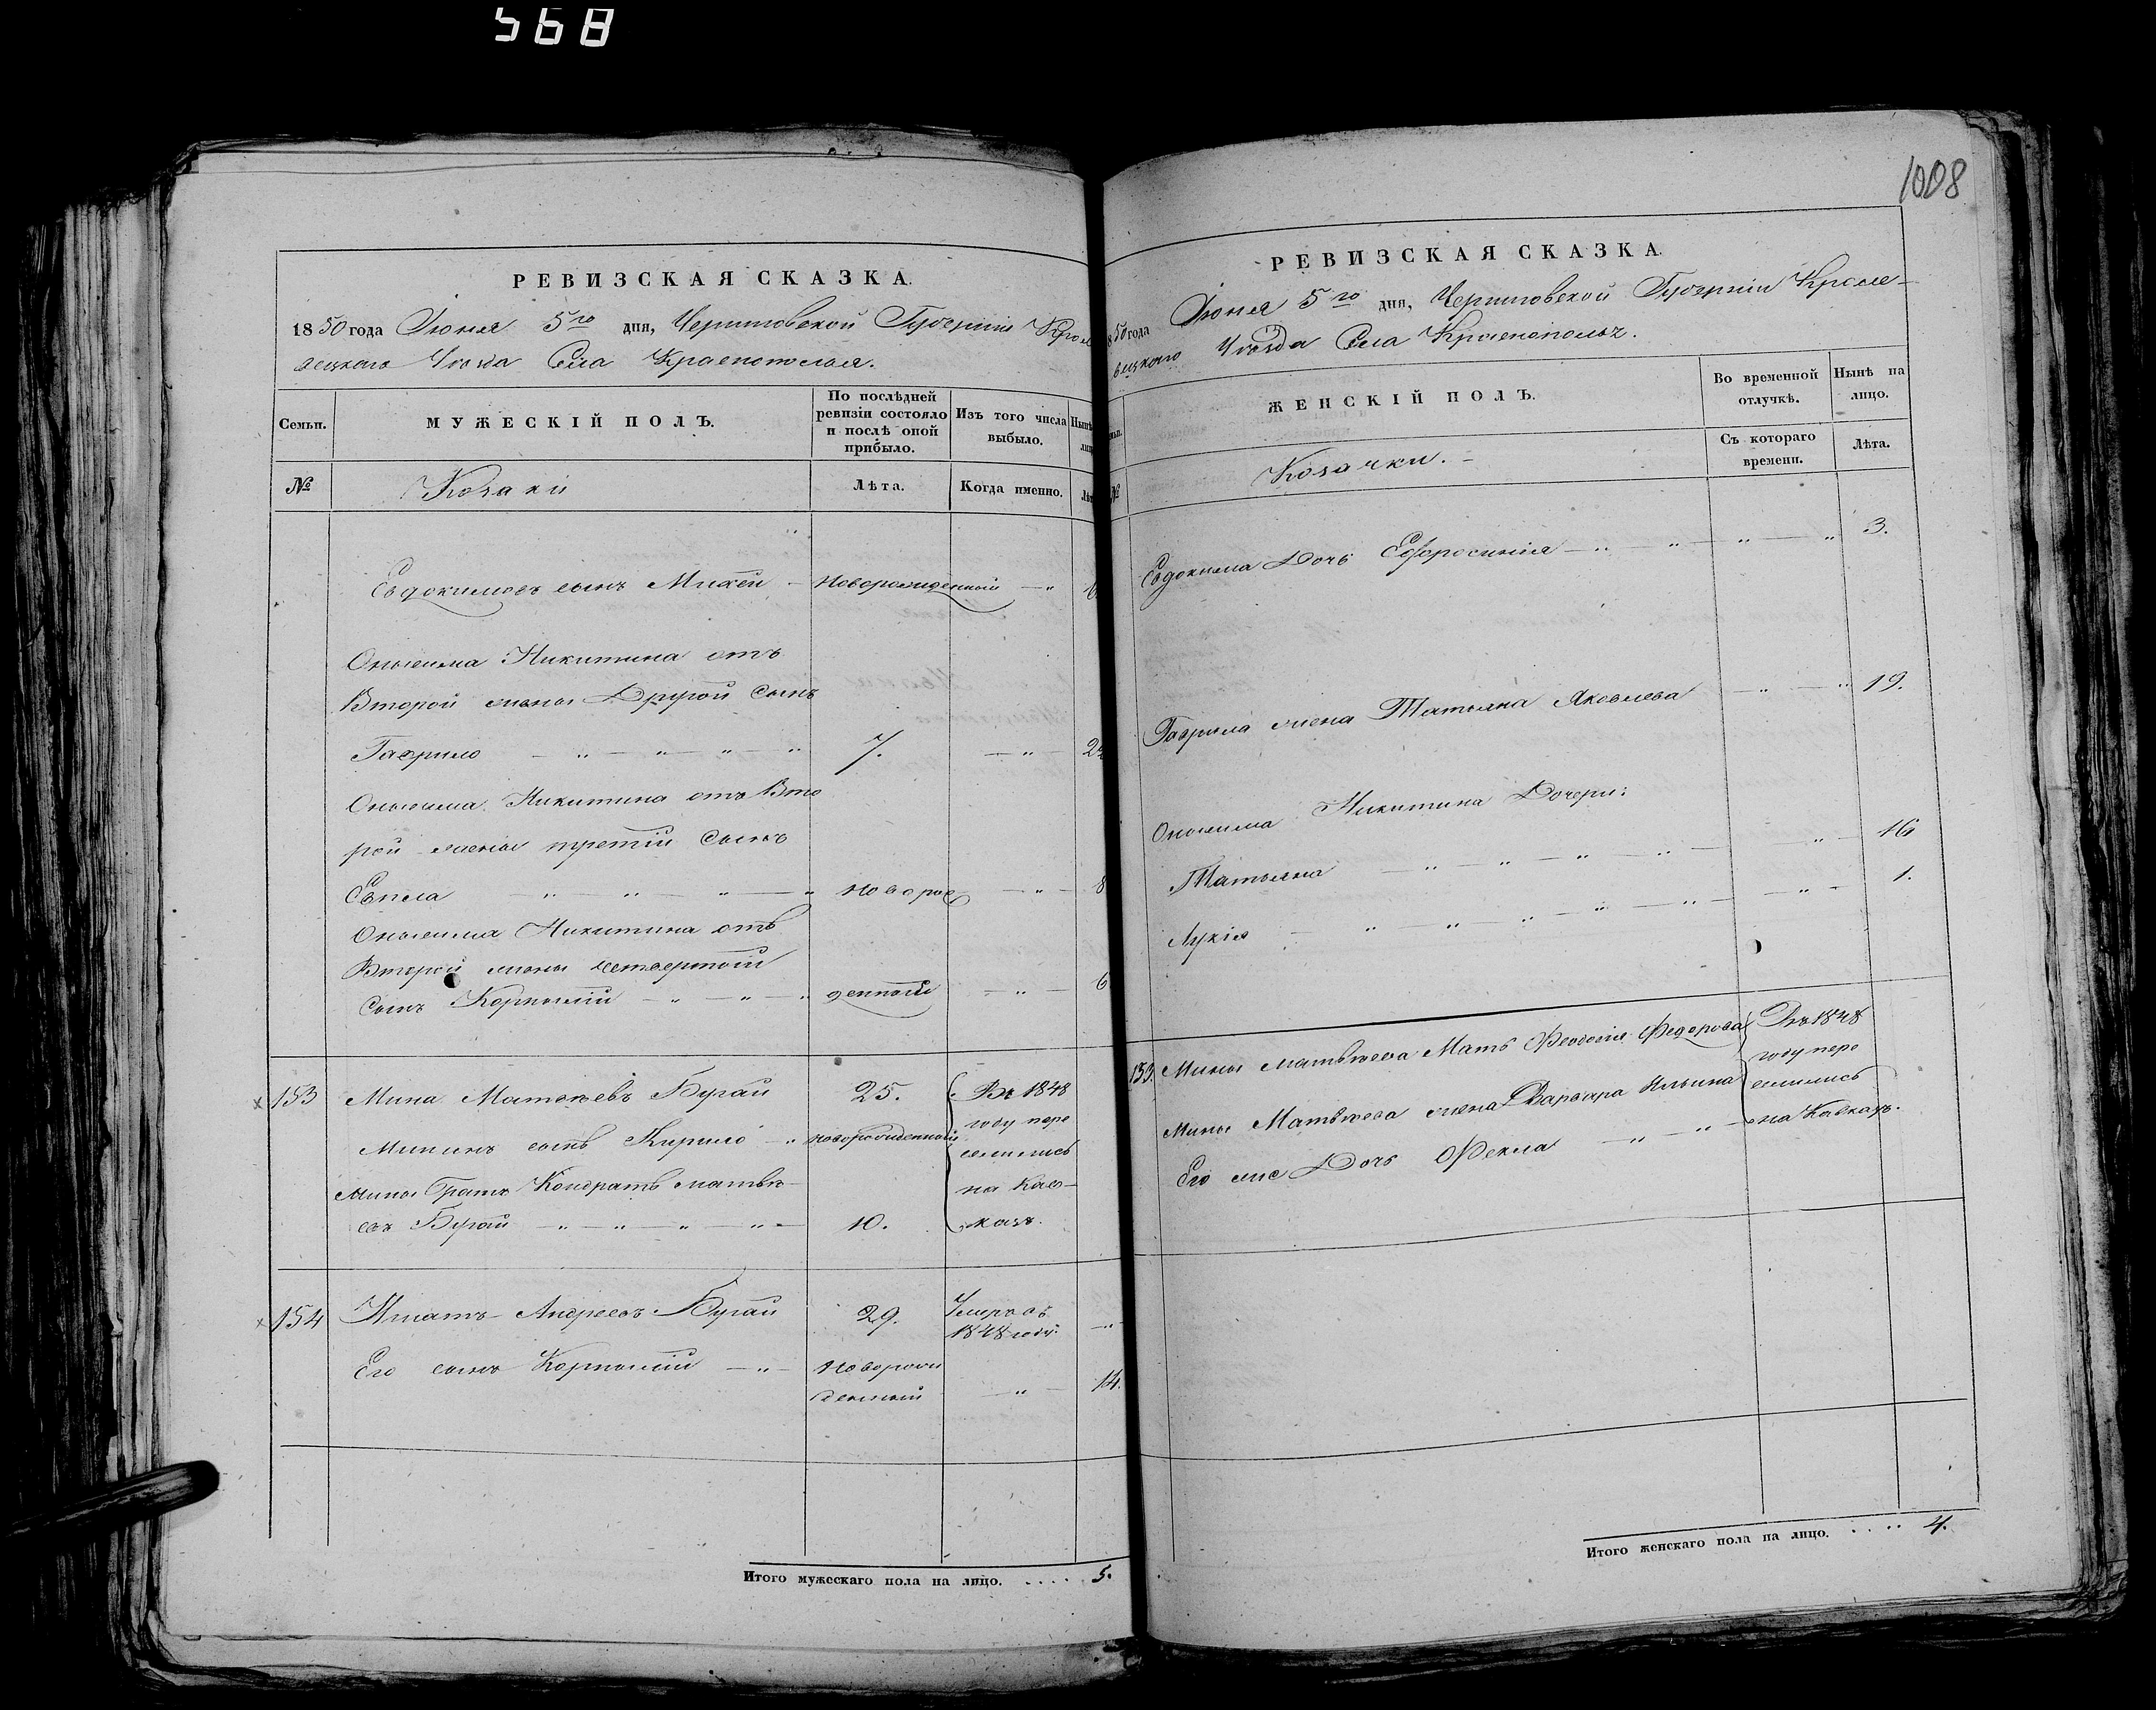 568
1008
РЕВИЗСКАЯ СКАЗКА.
1850 года Іюня 5го дня, Черниговской Губерніи Кроле
вецкаго Уѣзда Села Краснополья.
Семьи.
МУЖЕСКІЙ ПОЛЪ.
По послѣдней ревизіи состояло и послѣ оной прибыло.
Изъ того числа выбыло.
Нынѣ
№
Козаки
Лѣта.
Когда именно.
Евдокимовъ сынъ Михей - Новорожденный — „
Онисима Никитина отъ
Второй жены Другой сынъ
Гаврило — „ — „ — „ — „ 7. — „ —
Онисима Никитина отъ Вто
рой жены третій Сынъ
Евпла „ „ „ — „ Новорож — „ — 8
Онисима Никитина отъ
Второй жены четвертый
Сынъ Корнилій — „ — „ — „ денный — „ — 6
153 Мина Матвѣевъ Бугай 25. Въ 1848
Мининъ сынъ Кирило — „ новорожденный году пере
селились
Мины Братъ Кондратъ Матвѣ- на Кав-
евъ Бугай — „ — „ — „ — „ — 10. казъ.
154 Игнатъ Андреевъ Бугай 29. Умръ въ
1848 году. — „
Его сынъ Корнилій — „ — Новорож
денный — „ — 14.
Итого мужескаго пола на лицо. . . . . 5.
РЕВИЗСКАЯ СКАЗКА.
50 года Іюня 5го дня, Черниговской Губерніи Кроле-
вецкаго Уѣзда Села Краснополья.
ЖЕНСКІЙ ПОЛЪ.
Во временной отлучкѣ.
Нынѣ на лицо.
№
Козачки. -
Съ котораго времени.
Лѣта.
Евдокима Дочь Ефросинія — „ — „ — „ — „ 3.
Гаврила жена Татьяна Яковлева — „ — „ 19.
Онисима Никитина Дочери:
Татьяна — „ — „ — „ — „ — „ — 16
Лукія — „ — „ — „ — „ — „ — „ — 1.
153. Мины Матвѣева Мать Феодосія Федорова Въ 1848
году пере
Мины Матвѣева жена Варвара Ильина селились
Его же Дочь Фекла — „ — „ — на Кавказъ.
Итого женскаго пола на лицо. . . . . 4.